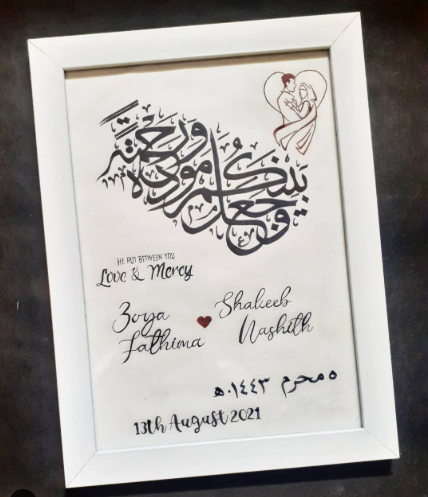 وجعل بينكم مودة ورحمة
HE PUT BETWEEN YOU
Love & Mercy
Zoya Fathima
Shakeeb Nashith
٥ محرم ١٤٤٣.ه
13th August 2021